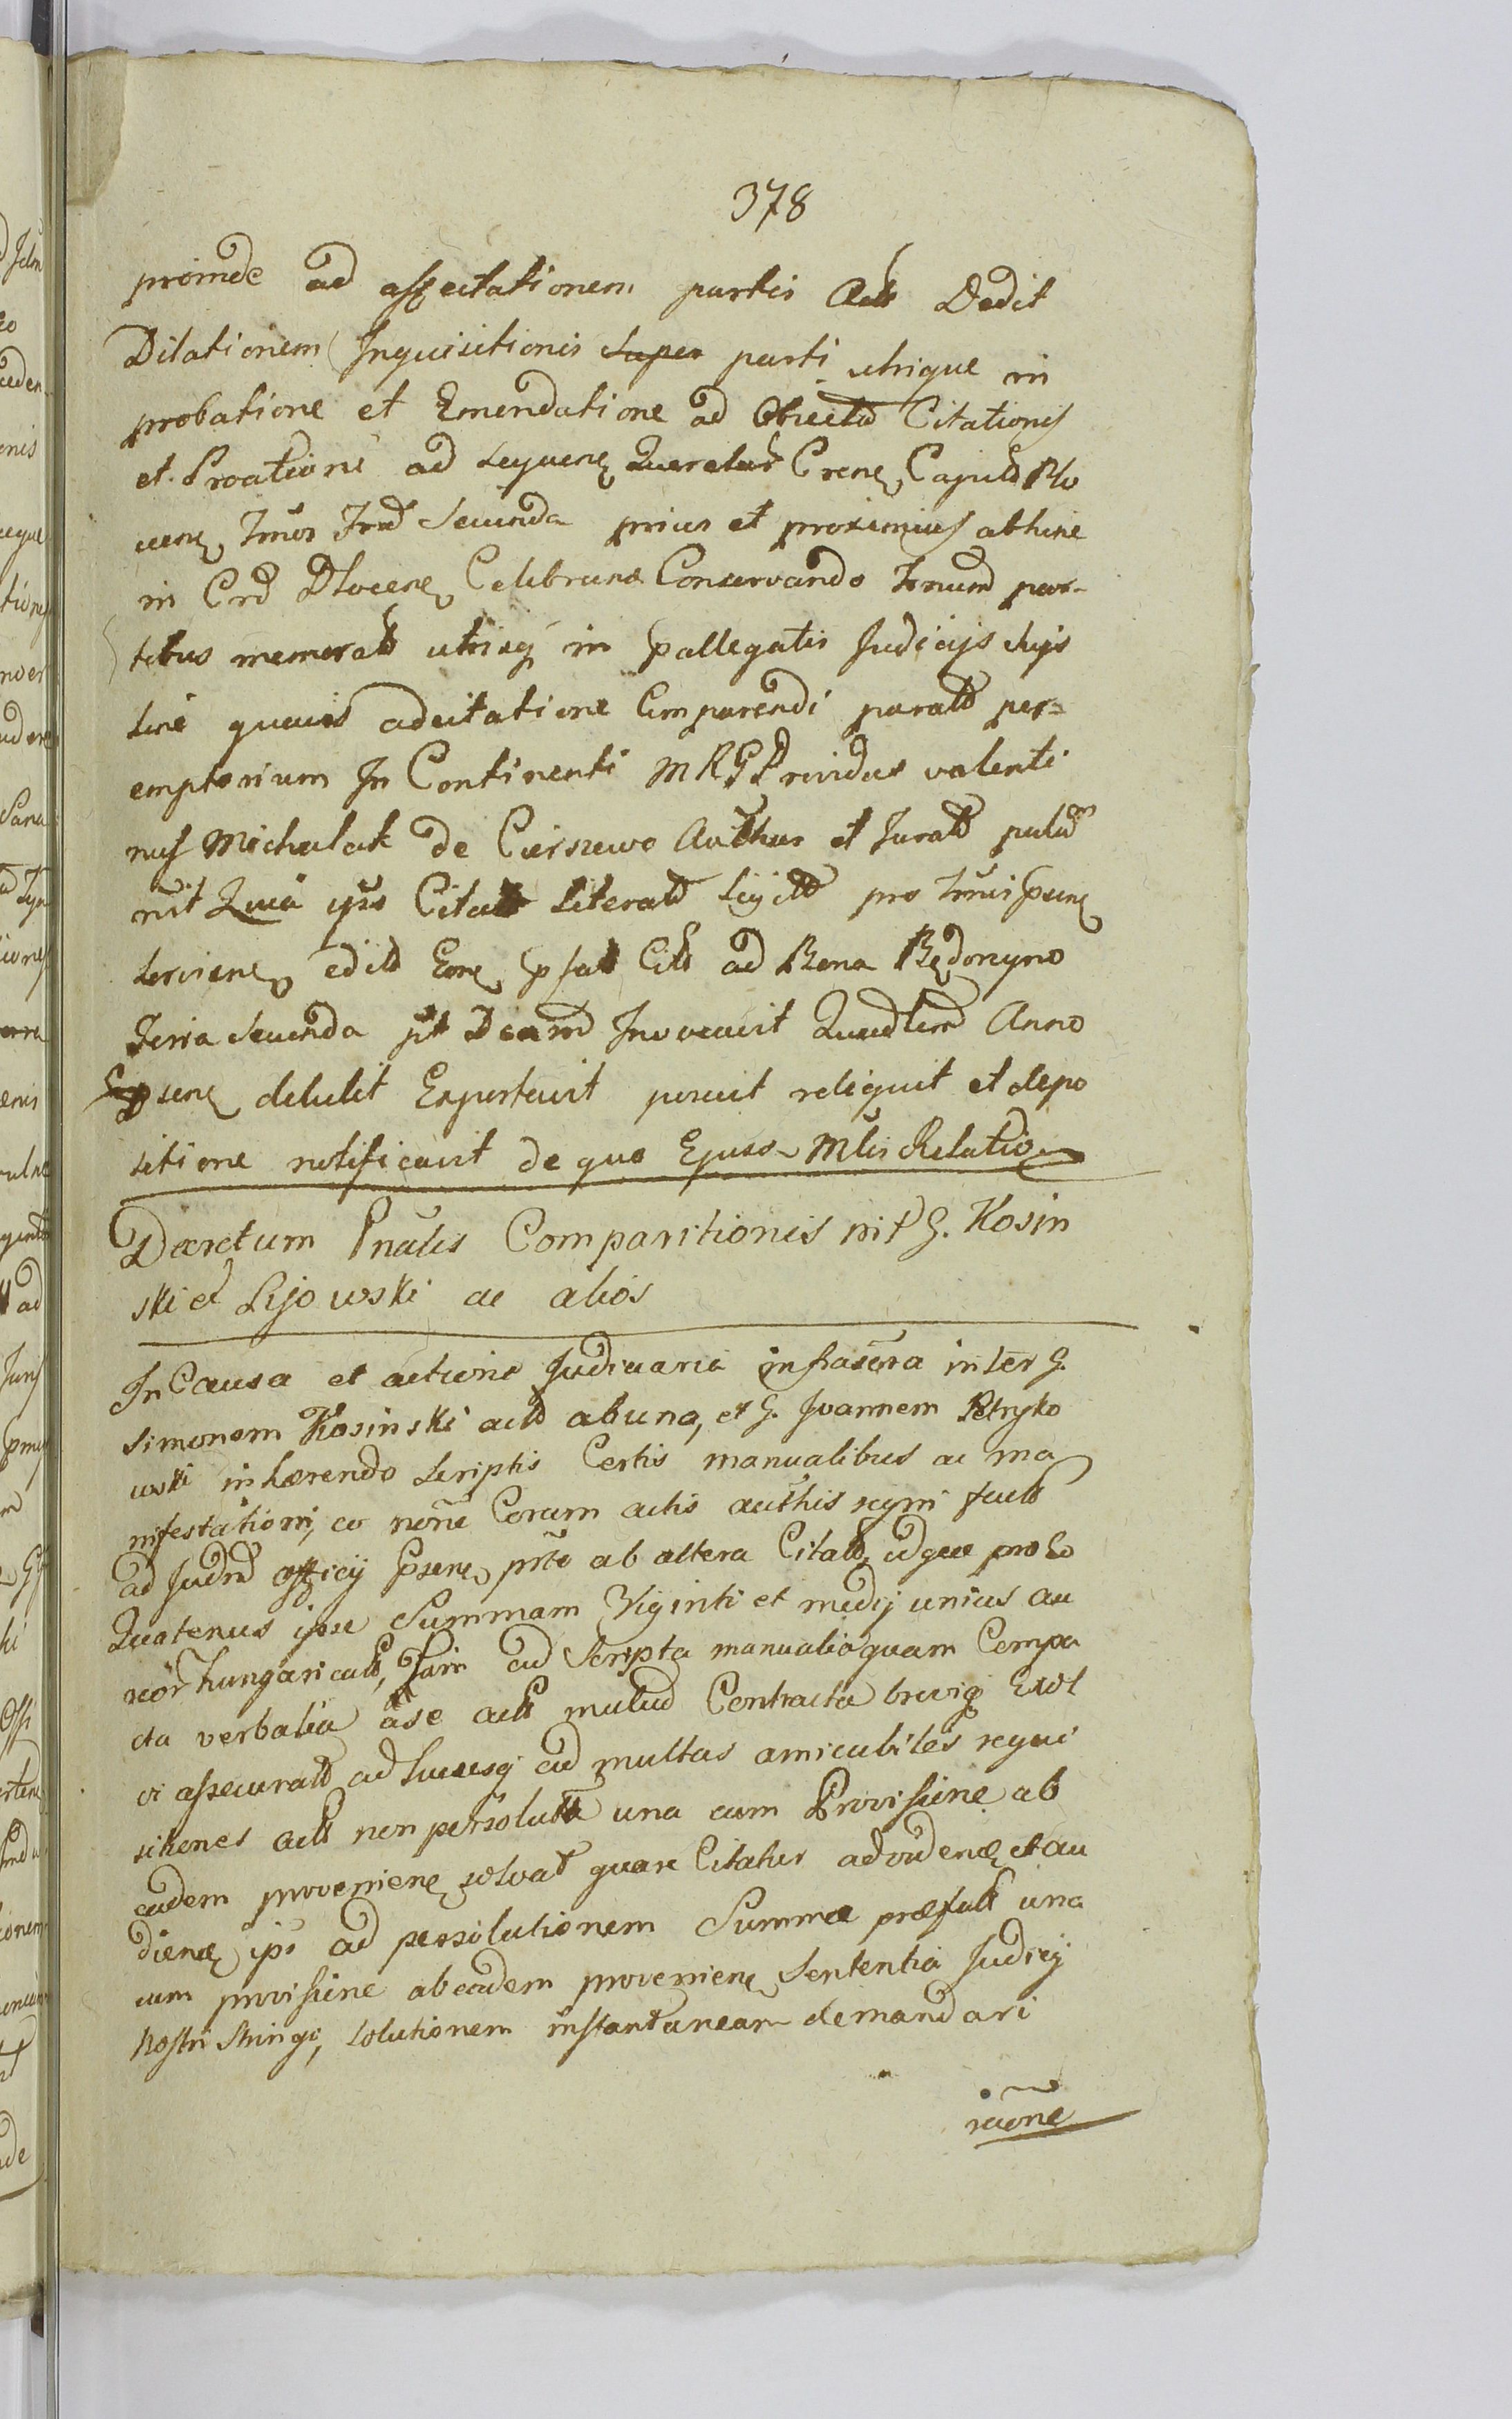 378
proinde ad affectationem partis Actt Dedit
Dilationem Inquisitionis super parti utrique in
probatione et Emendatione ad Obiecta Citationis
et Proatione ad sequene querelas Crene Capitt
uene Tmos Frd secunda prius et proximius abhinc
in Crd Celebrane Conservando Tmum par-
tibus memoratt utrisq in pallegatis Judicijs
sine quavis adcitatione Comparendi paratt per-
emptorium In Continenti MRG Providus valenti
nus Michalak de Cierszewo Authus et Juratt
nit Quia ipse Citatt Literatt Sigilltt pro
serviene editt Eone pfatt Citt ad Bona Będorzyno
Feria Secunda pst Dcam Invocavit Anno
psene detulit Exportavit posuit reliquit et depo
sitione notificavit de quo Ejusd Mlis Relatio
Decretum Pnalis Comparitionis int G. Kosin
ski et Lijowski ac alios
In Causa et actione Judiciaria infrascra inter G.
Simonem Kosinski actt ab una, et G. Joannem Petryko
wski inhærendo scriptis Certis manualibus ac ma
nifestationi, eo noñe Coram actis authis regni factt
ad Judm officij psene prto ab altera Citatt idque pro eo
Quatenus ipse Summam Viginti et medij unius au
reor hungaricatt, tam ad scripta manualia quam Compa
cta verbalia a se actt mutuo Contracta brevig
vi assecuratt ad hucusq ad multas amicabiles requi
sitiones actt non persoluta una cum Provisione ab
eadem proveniene solvat quare Citatus ad videne et au
diene ipsi ad persolutionem Summæ præfatt una
cum provisione ab eadem proveniene sententia Judicij
nostri stringi, solutionem instantaneam demandari
raõne